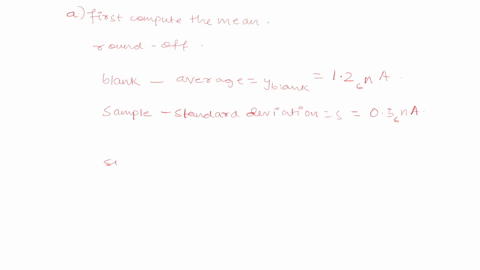 a) first compute the mean.
round-off.
blank — average = y_blank = 1.2₆ n A.
Sample — standard deviation = s = 0.3₆ n A.